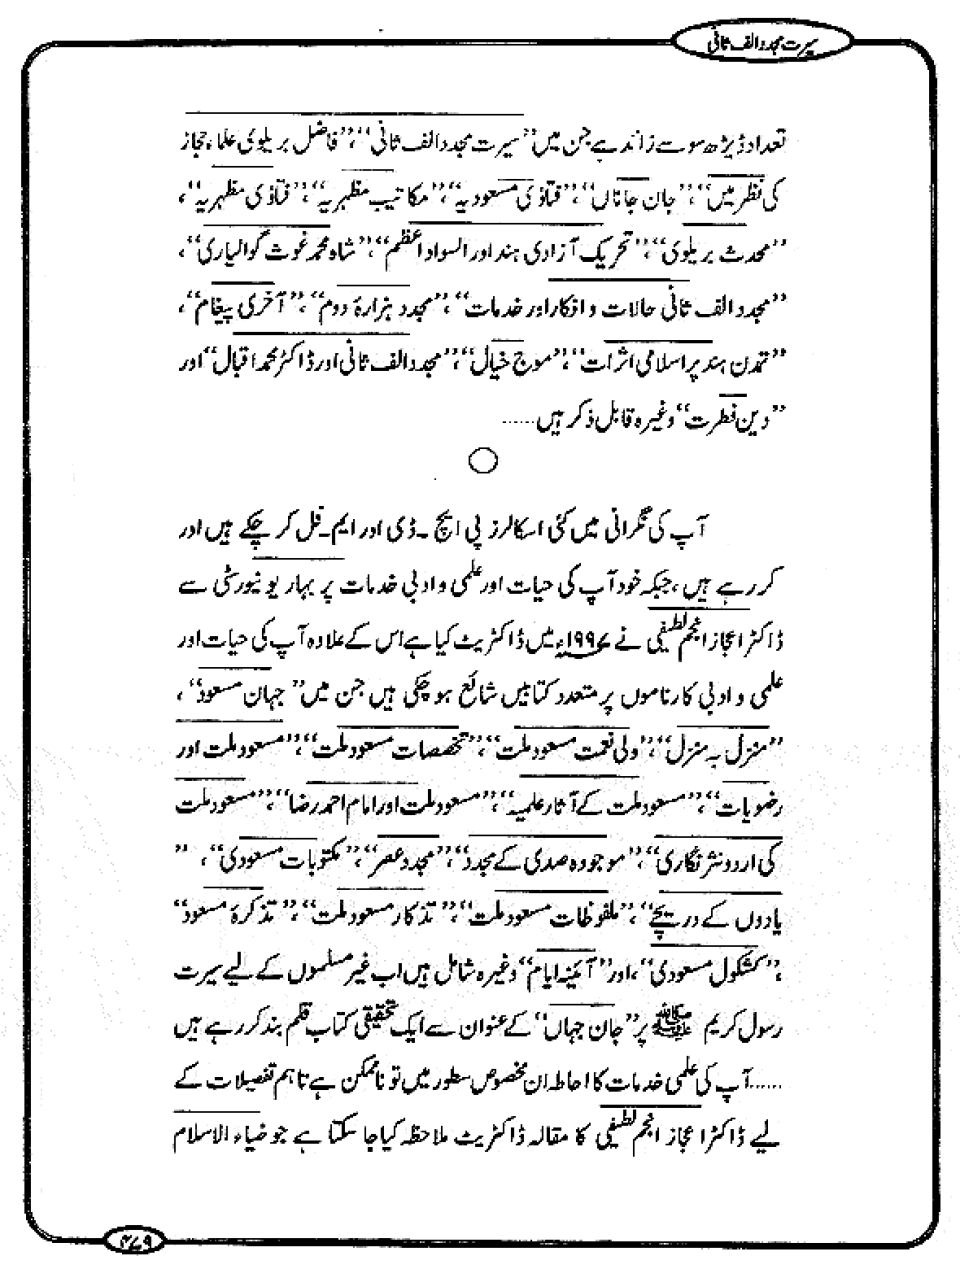 سیرت مجدد الف ثانی
تعداد ڈیڑھ سو سے زائد ہے جن میں ”سیرت مجدد الف ثانی“، ”فاضل بریلوی علماء حجاز
کی نظر میں“، ”جان جاناں“، ”فتاوٰی مسعودیہ“، ”مکاتیب مظہریہ“، ”فتاوٰی مظہریہ“،
”محدث بریلوی“، ”تحریک آزادی ہند اور السواد اعظم“، ”شاہ محمد غوث گوالیاری“،
”مجدد الف ثانی حالات و افکار اور خدمات“، ”مجدد ہزارۂ دوم“، ”آخری پیغام“،
”تمدن ہند پر اسلامی اثرات“، ”موج خیال“، ”مجدد الف ثانی اور ڈاکٹر محمد اقبال“ اور
”دین فطرت“ وغیرہ قابل ذکر ہیں......
آپ کی نگرانی میں کئی اسکالرز پی ایچ۔ڈی اور ایم۔فل کر چکے ہیں اور
کر رہے ہیں، جبکہ خود آپ کی حیات اور علمی و ادبی خدمات پر بہار یونیورسٹی سے
ڈاکٹر اعجاز انجم لطیفی نے ۱۹۹۷ء میں ڈاکٹریٹ کیا ہے اس کے علاوہ آپ کی حیات اور
علمی و ادبی کارناموں پر متعدد کتابیں شائع ہو چکی ہیں جن میں ”جہان مسعود“،
”منزل بہ منزل“، ”ولی نعمت مسعود ملت“، ”تخصصات مسعود ملت“، ”مسعود ملت اور
رضویات“، ”مسعود ملت کے آثار علمیہ“، ”مسعود ملت اور امام احمد رضا“، ”مسعود ملت
کی اردو نثر نگاری“، ”موجودہ صدی کے مجدد“، ”مجدد عصر“، ”مکتوبات مسعودی“، ”
یادوں کے دریچے“، ”ملفوظات مسعود ملت“، ”تذکار مسعود ملت“، ”تذکرۂ مسعود“
،”کشکول مسعودی“، اور ”آئینہ ایام“ وغیرہ شامل ہیں اب غیر مسلموں کے لیے سیرت
رسول کریم ﷺ پر ”جان جہاں“ کے عنوان سے ایک تحقیقی کتاب قلم بند کر رہے ہیں
......آپ کی علمی خدمات کا احاطہ ان مخصوص سطور میں تو ناممکن ہے تاہم تفصیلات کے
لیے ڈاکٹر اعجاز انجم لطیفی کا مقالہ ڈاکٹریٹ ملاحظہ کیا جا سکتا ہے جو ضیاء الاسلام
۴۷۹